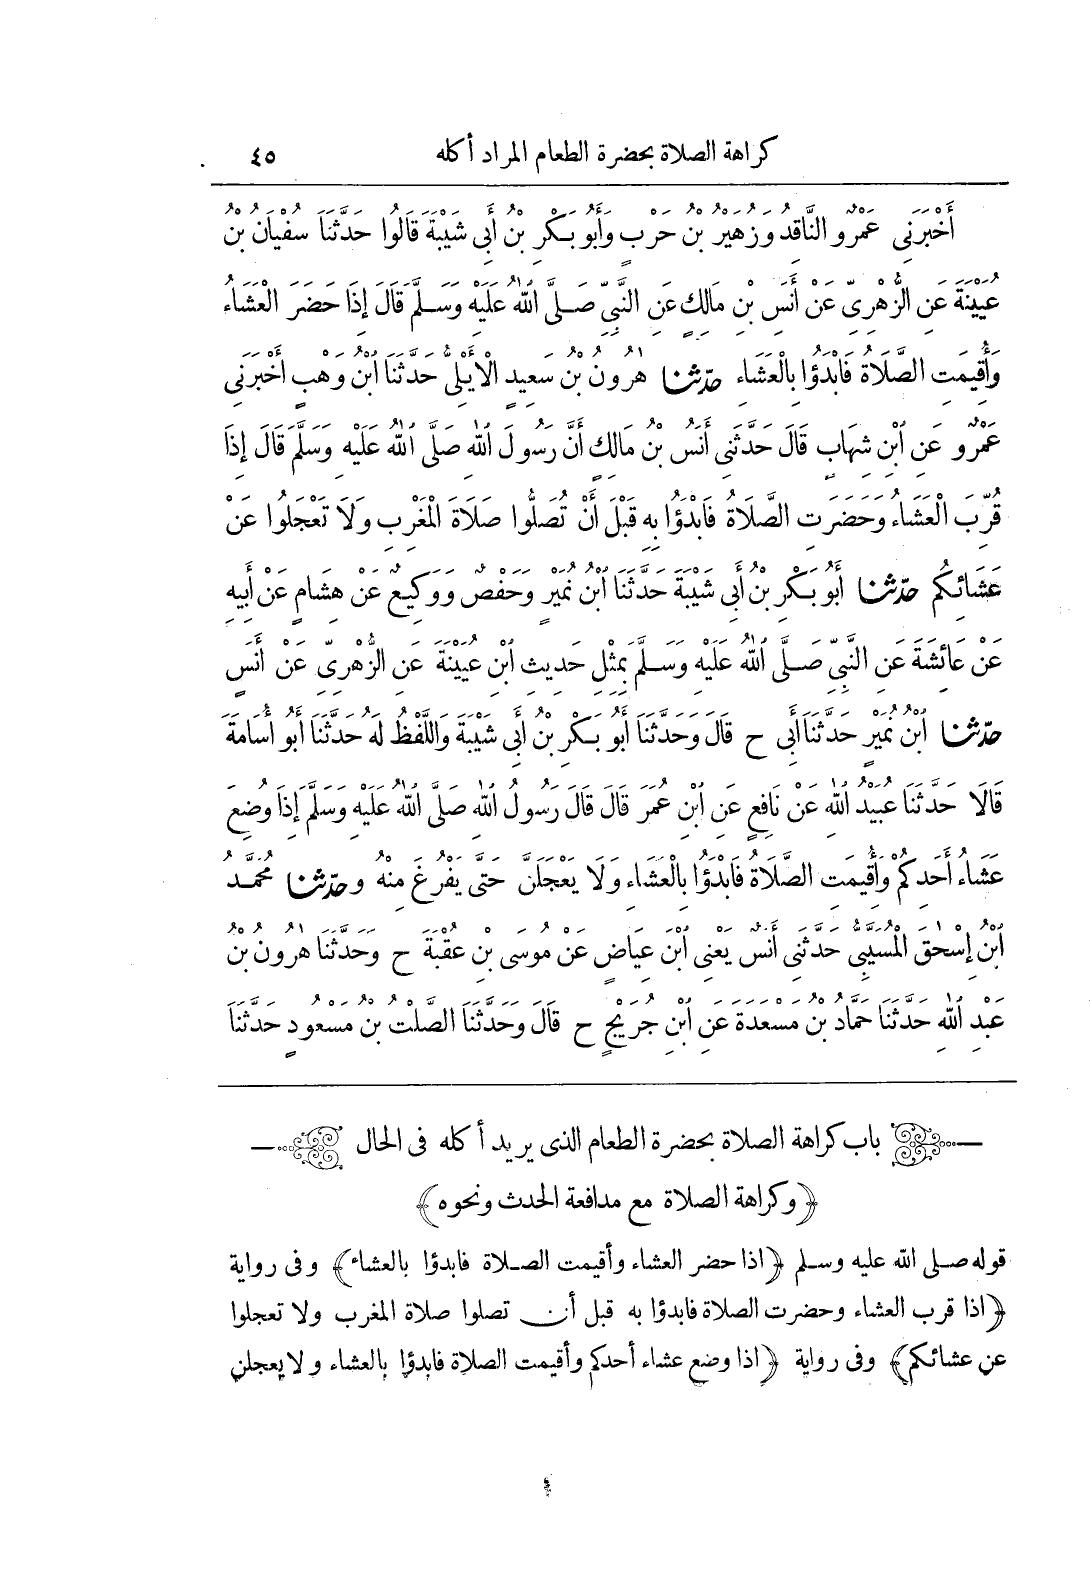 كراهة الصلاة بحضرة الطعام المراد أكله ٤٥
أَخْبَرَنِى عَمْرٌو النَّاقِدُ وَزُهَيْرُ بْنُ حَرْبٍ وَأَبُو بَكْرِ بْنُ أَبِى شَيْبَةَ قَالُوا حَدَّثَنَا سُفْيَانُ بْنُ
عُيَيْنَةَ عَنِ الزُّهْرِىِّ عَنْ أَنَسِ بْنِ مَالِكٍ عَنِ النَّبِىِّ صَلَّى اللهُ عَلَيْهِ وَسَلَّمَ قَالَ إِذَا حَضَرَ الْعَشَاءُ
وَأُقِيمَتِ الصَّلَاةُ فَابْدَؤُا بِالْعَشَاءِ حدّثنا هٰرُونُ بْنُ سَعِيدٍ الْأَيْلِىُّ حَدَّثَنَا ابْنُ وَهْبٍ أَخْبَرَنِى
عَمْرٌو عَنِ ابْنِ شِهَابٍ قَالَ حَدَّثَنِى أَنَسُ بْنُ مَالِكٍ أَنَّ رَسُولَ اللهِ صَلَّى اللهُ عَلَيْهِ وَسَلَّمَ قَالَ إِذَا
قُرِّبَ الْعَشَاءُ وَحَضَرَتِ الصَّلَاةُ فَابْدَؤُا بِهِ قَبْلَ أَنْ تُصَلُّوا صَلَاةَ الْمَغْرِبِ وَلَا تَعْجَلُوا عَنْ
عَشَائِكُمْ حدّثنا أَبُو بَكْرِ بْنُ أَبِى شَيْبَةَ حَدَّثَنَا ابْنُ نُمَيْرٍ وَحَفْصٌ وَوَكِيعٌ عَنْ هِشَامٍ عَنْ أَبِيهِ
عَنْ عَائِشَةَ عَنِ النَّبِىِّ صَلَّى اللهُ عَلَيْهِ وَسَلَّمَ بِمِثْلِ حَدِيثِ ابْنِ عُيَيْنَةَ عَنِ الزُّهْرِىِّ عَنْ أَنَسٍ
حدّثنا ابْنُ نُمَيْرٍ حَدَّثَنَا أَبِى ح قَالَ وَحَدَّثَنَا أَبُو بَكْرِ بْنُ أَبِى شَيْبَةَ وَاللَّفْظُ لَهُ حَدَّثَنَا أَبُو أُسَامَةَ
قَالَا حَدَّثَنَا عُبَيْدُ اللهِ عَنْ نَافِعٍ عَنِ ابْنِ عُمَرَ قَالَ قَالَ رَسُولُ اللهِ صَلَّى اللهُ عَلَيْهِ وَسَلَّمَ إِذَا وُضِعَ
عَشَاءُ أَحَدِكُمْ وَأُقِيمَتِ الصَّلَاةُ فَابْدَؤُا بِالْعَشَاءِ وَلَا يَعْجَلَنَّ حَتَّى يَفْرُغَ مِنْهُ وحدّثنا مُحَمَّدُ
ابْنُ إِسْحٰقَ الْمُسَيَّبِىُّ حَدَّثَنِى أَنَسٌ يَعْنِى ابْنَ عِيَاضٍ عَنْ مُوسَى بْنِ عُقْبَةَ ح وَحَدَّثَنَا هٰرُونُ بْنُ
عَبْدِ اللهِ حَدَّثَنَا حَمَّادُ بْنُ مَسْعَدَةَ عَنِ ابْنِ جُرَيْجٍ ح قَالَ وَحَدَّثَنَا الصَّلْتُ بْنُ مَسْعُودٍ حَدَّثَنَا
باب كراهة الصلاة بحضرة الطعام الذى يريد أكله فى الحال
﴿وكراهة الصلاة مع مدافعة الحدث ونحوه﴾
قوله صلى الله عليه وسلم ﴿اذا حضر العشاء وأقيمت الصلاة فابدؤا بالعشاء﴾ وفى رواية
﴿اذا قرب العشاء وحضرت الصلاة فابدؤا به قبل أن تصلوا صلاة المغرب ولا تعجلوا
عن عشائكم﴾ وفى رواية ﴿اذا وضع عشاء أحدكم وأقيمت الصلاة فابدؤا بالعشاء ولا يعجلن